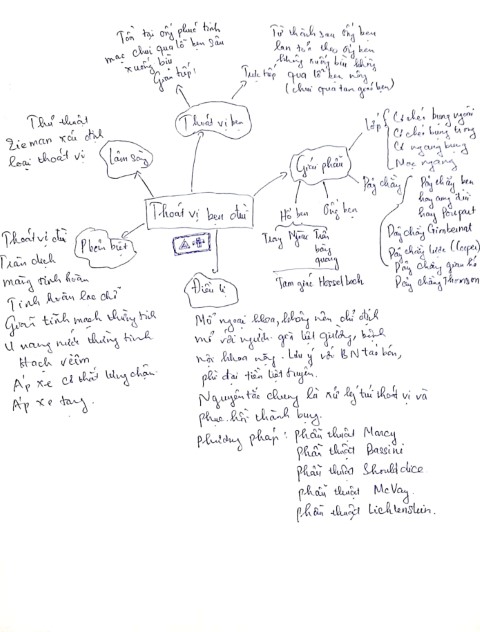 Tồn tại ống phúc tinh
mạc chui qua lỗ bẹn sâu
xuống bìu
Gián tiếp!
Từ thành sau ống bẹn
lan tới theo ống bẹn
không xuống bìu không
Trực tiếp qua lỗ bẹn nông
(chui qua tam giác bẹn)
Thoát vị bẹn
Thủ thuật
Zieman xác định
loại thoát vị
Lâm sàng
Giải phẫu
Lớp
Cơ chéo bụng ngoài
Cơ chéo bụng trong
Cơ ngang bụng
Mạc ngang
Dây chằng
Dây chằng bẹn
hay cung đùi
hay Poupart
Dây chằng Gimbernat
Dây chằng lược (Cooper)
Dây chằng gian hố
Dây chằng Thomson
Hố bẹn
Ống bẹn
Trong Ngoài Trên
bàng
quang
Tam giác Hesselbach
Thoát vị bẹn đùi
Phân biệt
Thoát vị đùi
Tràn dịch
màng tinh hoàn
Tinh hoàn lạc chỗ
Giãn tĩnh mạch thừng tinh
U nang nước thừng tinh
Hạch viêm
Áp xe cơ thắt lưng chậu
Áp xe lạnh
Điều trị
Mổ ngoại khoa, không nên chỉ định
mổ với người già liệt giường, bệnh
nội khoa nặng. Lưu ý với BN táo bón,
phì đại tiền liệt tuyến.
Nguyên tắc chung là xử lý túi thoát vị và
phục hồi thành bụng.
Phương pháp: phẫu thuật Marcy
phẫu thuật Bassini
phẫu thuật Shouldice
phẫu thuật McVay
phẫu thuật Lichtenstein.